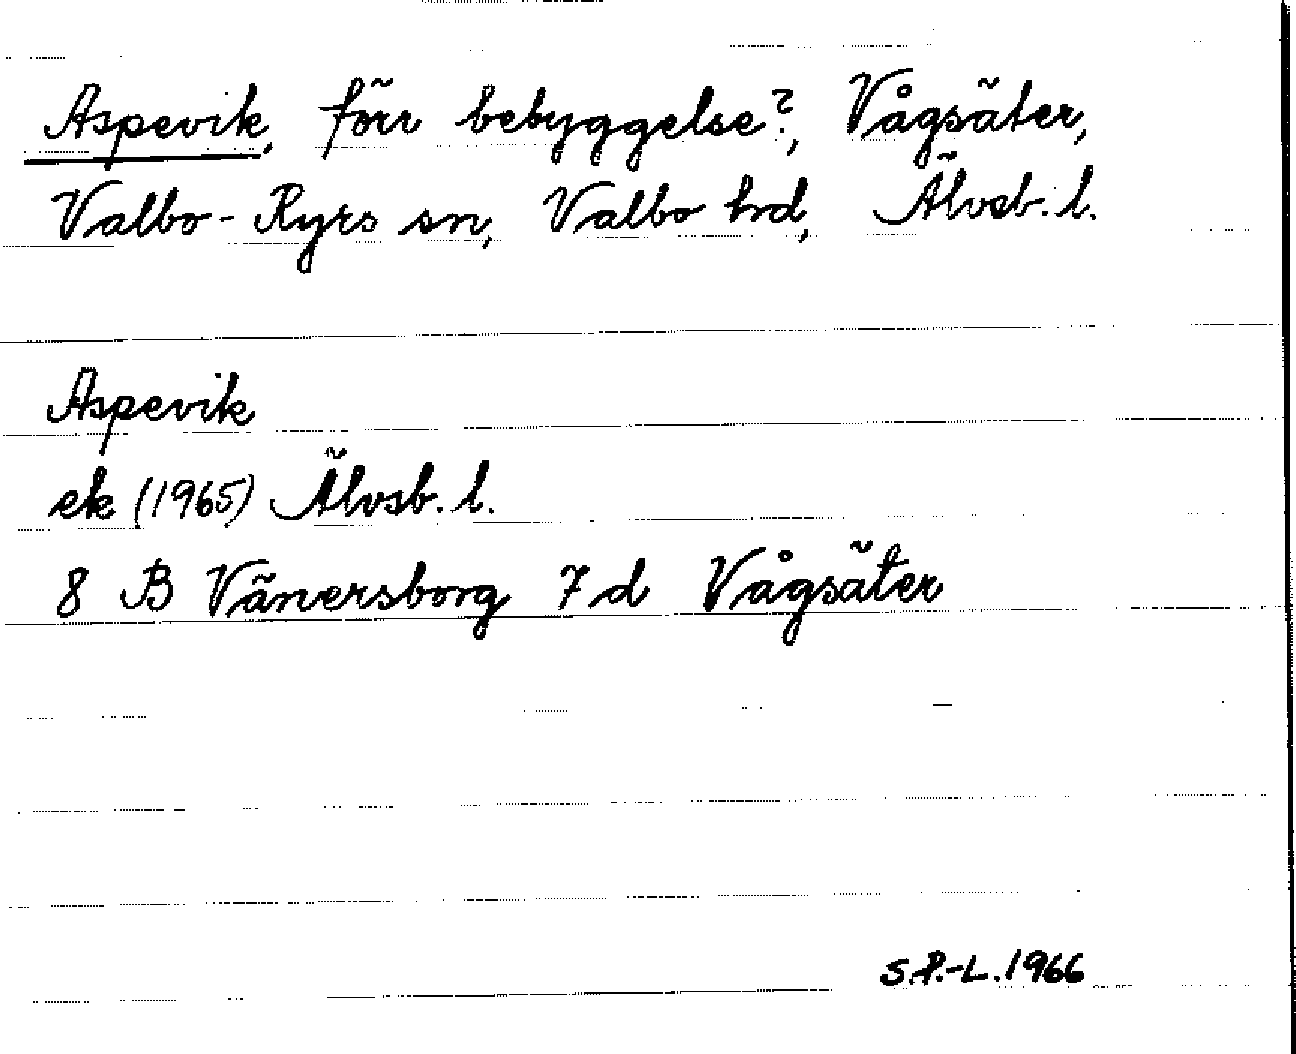 Aspevik, förr bebyggelse?, Vågsäter,
Valbo-Ryrs sn, Valbo hd, Älvsb. l.
Aspevik
ek (1965) Älvsb. l.
8 B Vänersborg 7d Vågsäter
S.P.-L. 1966